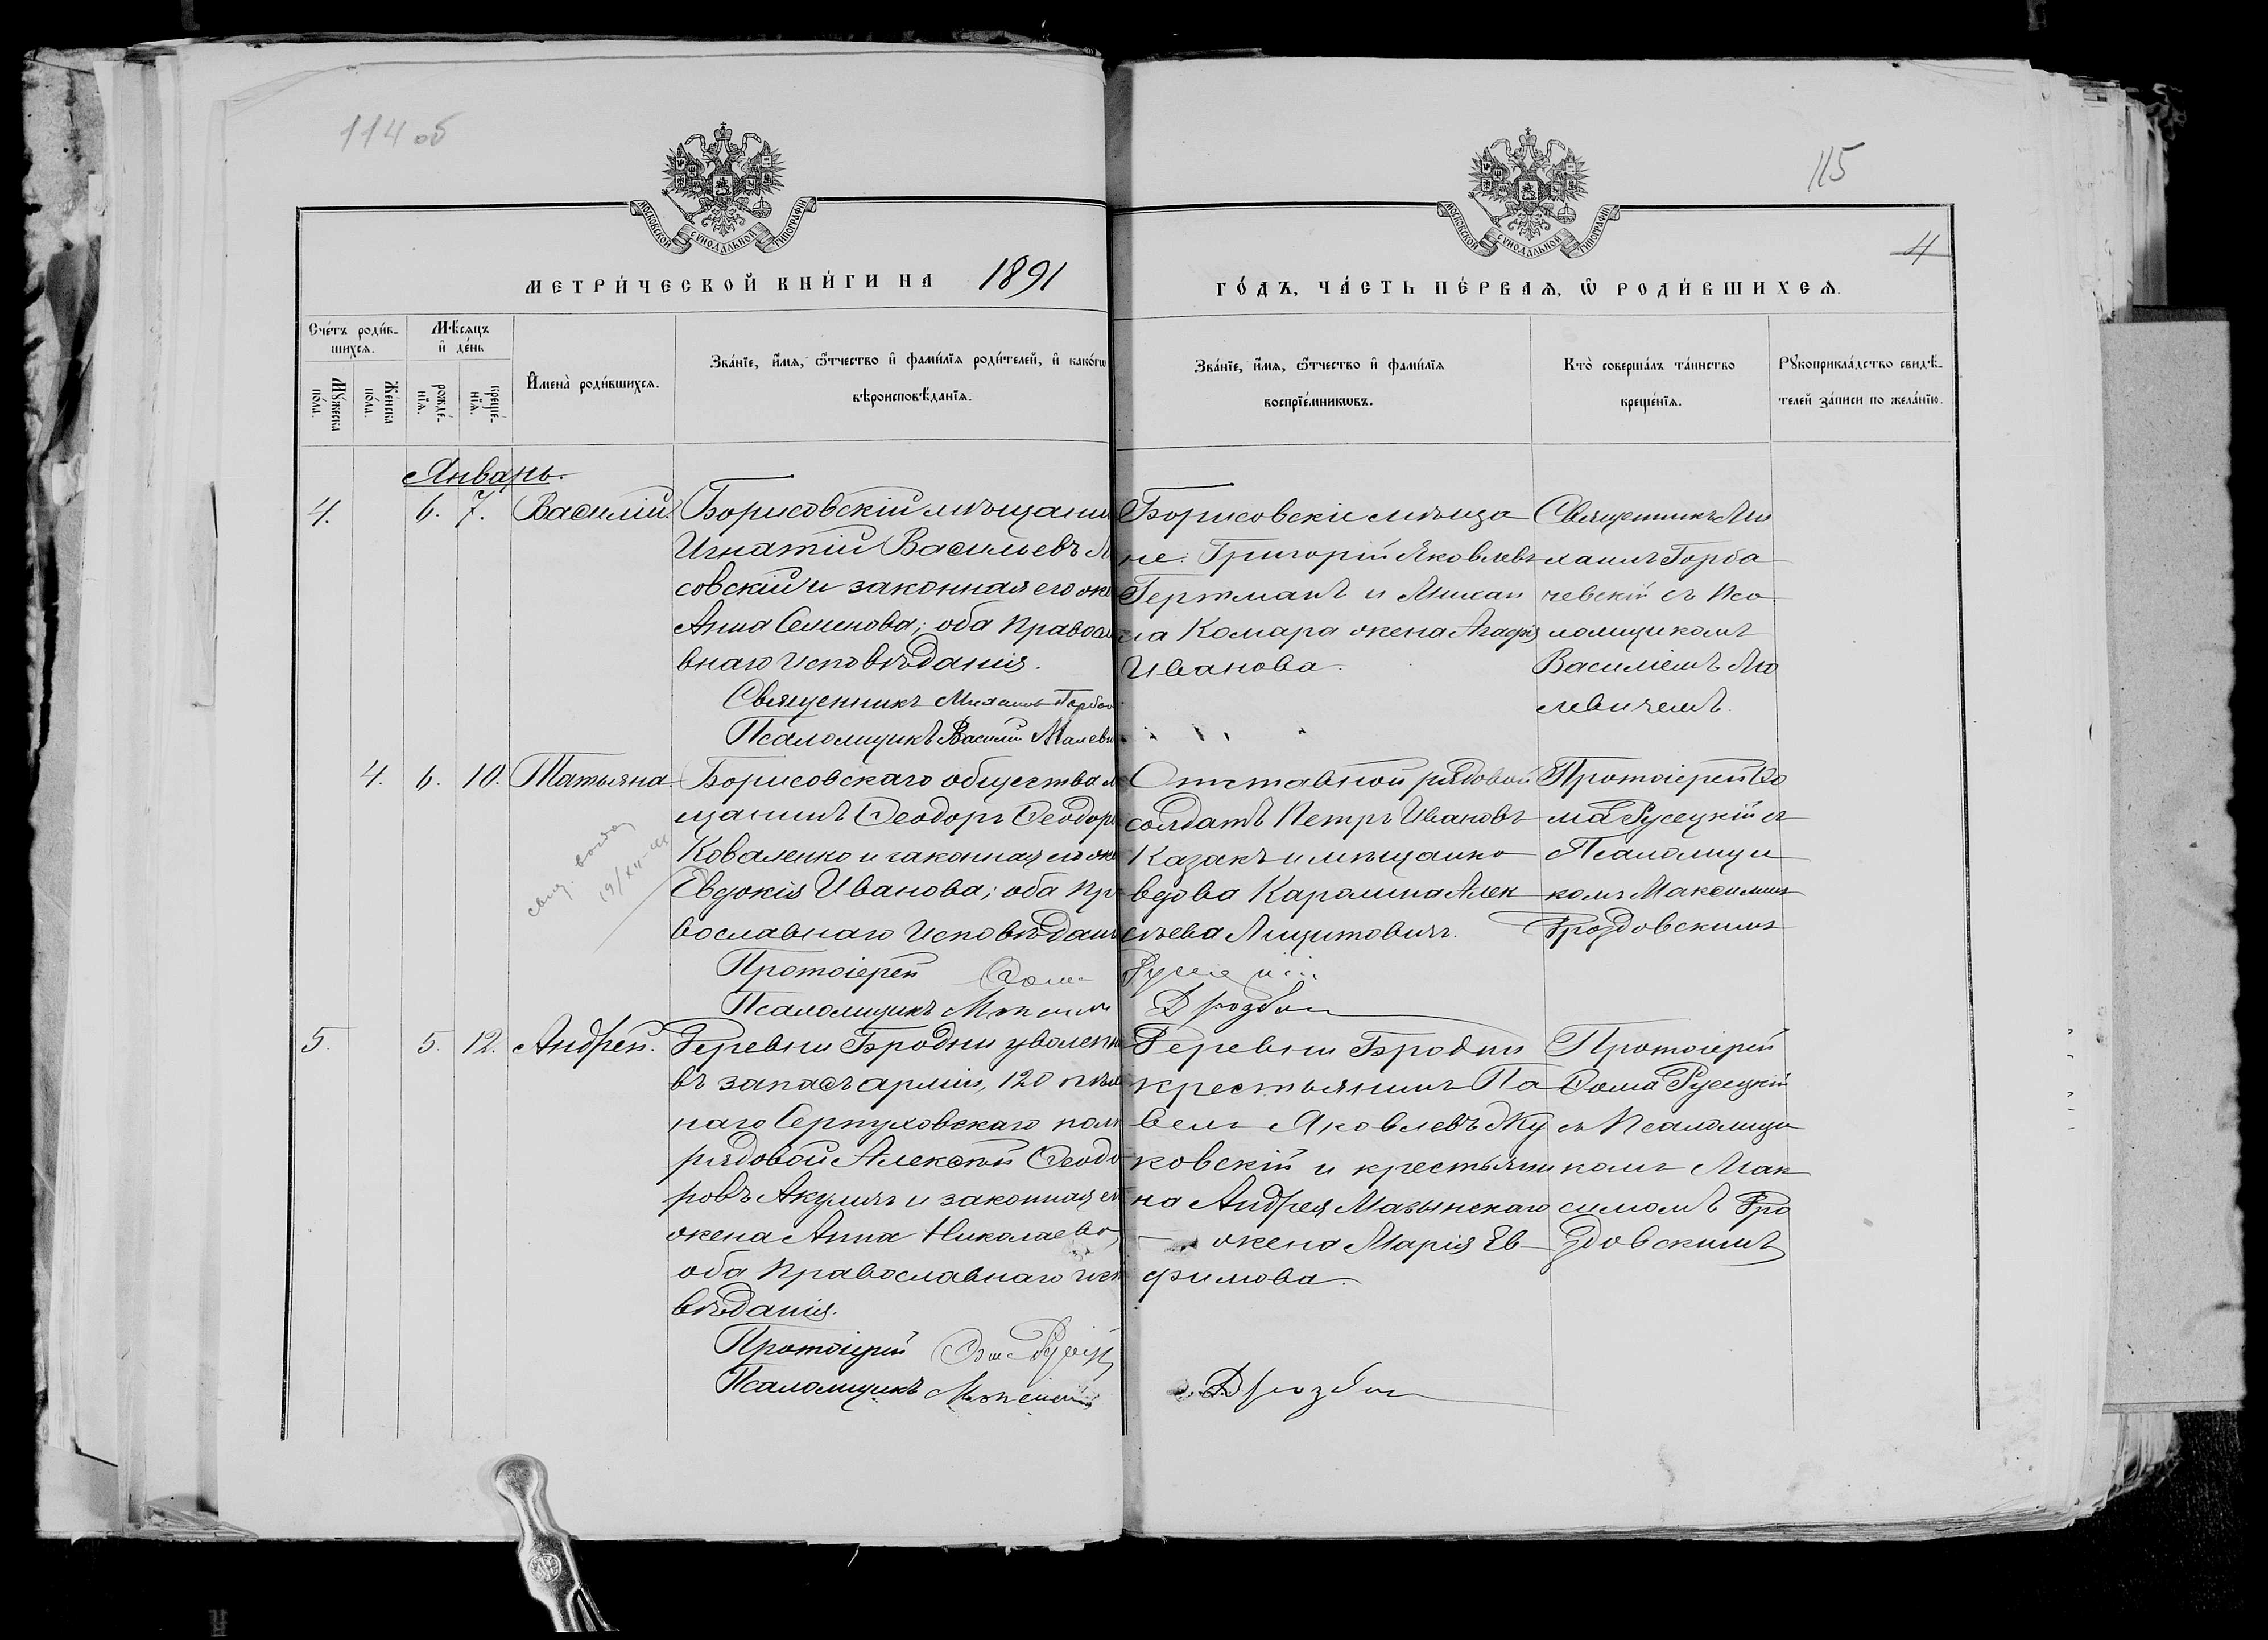 114 об
115
4
МОСКОВСКОЙ СѴНОДАЛЬНОЙ ТИПОГРАФІИ
МОСКОВСКОЙ СѴНОДАЛЬНОЙ ТИПОГРАФІИ
МЕТРИ́ЧЕСКОЙ КНИ́ГИ НА 1891
ГО́ДЪ, ЧА́СТЬ ПЕ́РВАЯ, Ѿ РОДИ́ВШИХСЯ.
Сче́тъ роди́в-
шихся.
Мꙋ́жеска
по́ла.
Же́нска
по́ла.
Мѣ́сяцъ
и҆ де́нь
рожде́-
нїя.
креще́-
нїя.
И҆мена̀ роди́вшихся.
Зва́нїе, и҆́мя, ѻ҆́тчество и҆ фами́лїя роди́телей, и҆ како́гѡ
вѣроисповѣ́данїя.
Зва́нїе, и҆́мя, ѻ҆́тчество и҆ фами́лїя
воспрїе́мникѡвъ.
Кто̀ соверша́лъ та́инство
креще́нїя.
Рꙋкоприкла́дство свидѣ́-
телей за́писи по жела́нїю.
Январь.
4.
6. 7.
Василій.
Борисовскій мѣщани
Игнатій Васильевъ
совскій и законная его же
Анна Семенова; оба правосл
внаго исповѣданія.
Священникъ Михаилъ Горба
Псаломщикъ Василій
Борисовскіе мѣща
не: Григорій Яковлевъ
Гертманъ и Михаи
ла Комара жена Агафія
Иванова.
Священникъ Ми
хаилъ Горба
чевскій съ Пса
ломщикомъ
Василіемъ Ма
левичемъ.
4. 6. 10.
Татьяна.
19/XII
Борисовскаго общества м
щанинъ Ѳеодоръ Ѳеодоро
Коваленко и законная его же
Евдокія Иванова; оба пра
вославнаго исповѣдані
Протоіерей Ѳома
Псаломщикъ Максим
Отставной рядовой
солдатъ Петръ Ивановъ
Казакъ и мѣщанка
вдова Каролина Алек
сѣева
Русецкій
Дроздов
Протоіерей Ѳо
ма Русецкій съ
Псаломщи
комъ Максимомъ
Дроздовскимъ
5.
5. 12.
Андрей.
Деревни Бродни уволенн
въ запасъ арміи, 120 пѣхо
наго Серпуховскаго полк
рядовой Алексѣй Ѳеодо
ровъ Акуличъ и законная ег
жена Анна Николаева,
оба православнаго испо
вѣданія.
Протоіерей Ѳома Русецк
Псаломщикъ Максим
Деревни Бродни
крестьянинъ Па
велъ Яковлевъ Жу
ковскій и крестьяни
на Андрея Мазынскаго
жена Марія Ев
фимова.
Дроздов
Протоіерей
Ѳома Русецкій
съ Псаломщи
комъ Мак
симомъ Дро
здовскимъ